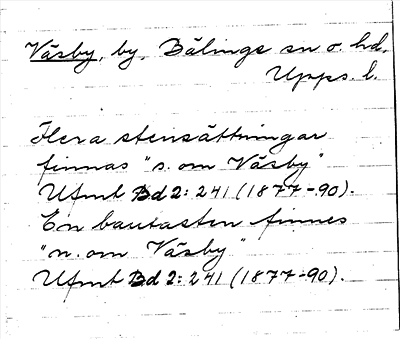 Väsby, by, Bälinge sn o. hd,
Upps. l.
Flera stensättningar
finnas "s. om Väsby"
Ufmt Bd 2: 241 (1877-90).
En bautasten finnes
"n. om Väsby"
Ufmt Bd 2: 241 (1877-90).